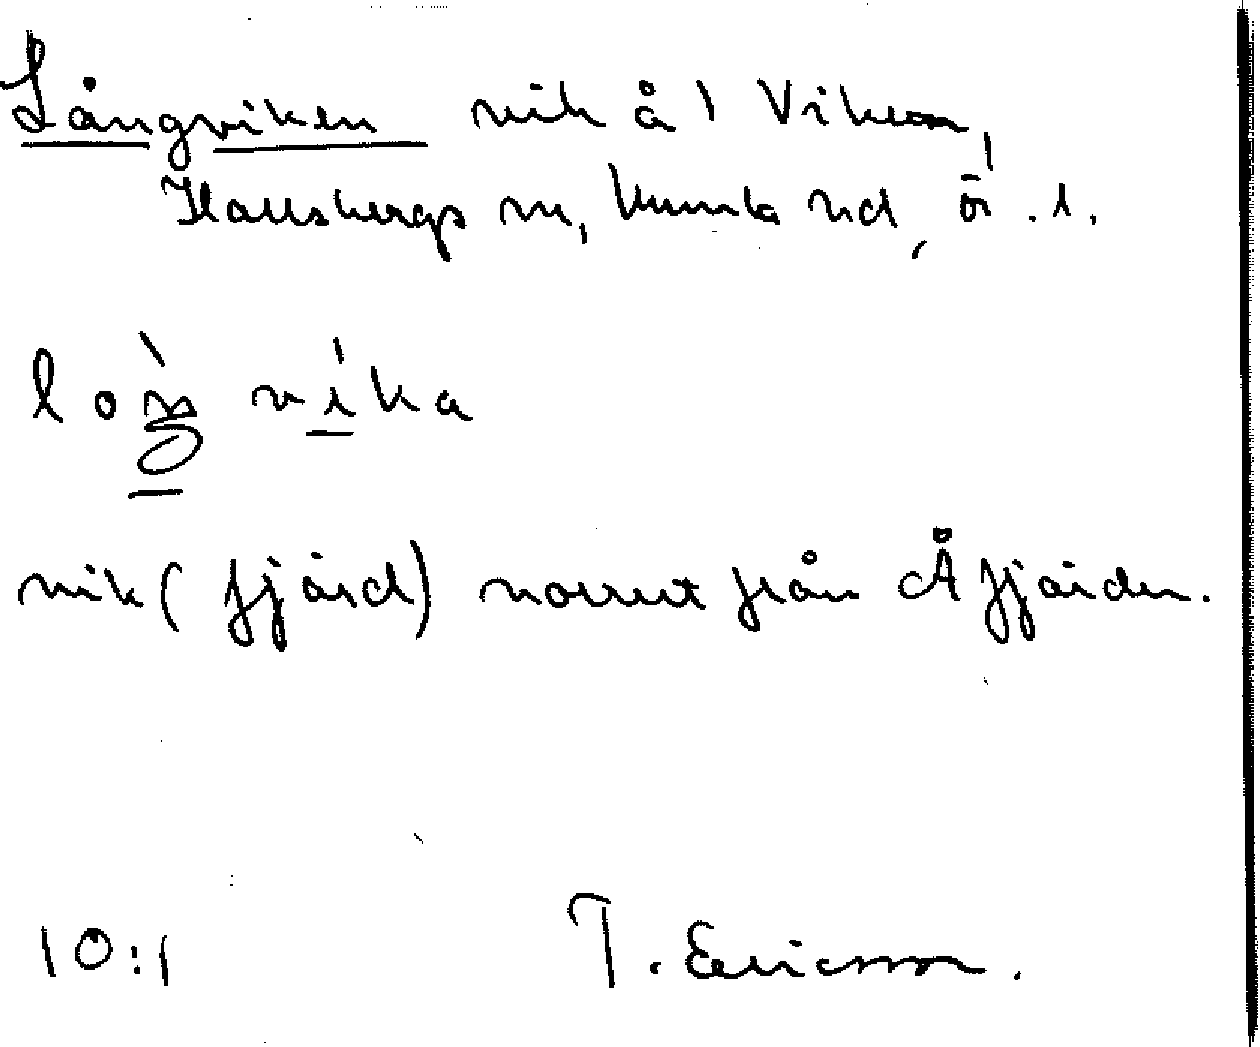 Långviken vik å 1 Viken,
Hallsbergs sn, Kumla hd, ör. l.
loŋ̀ vi̱ka
vik (fjärd) norrut från Åfjärden.
10:1 T. Ericsson.